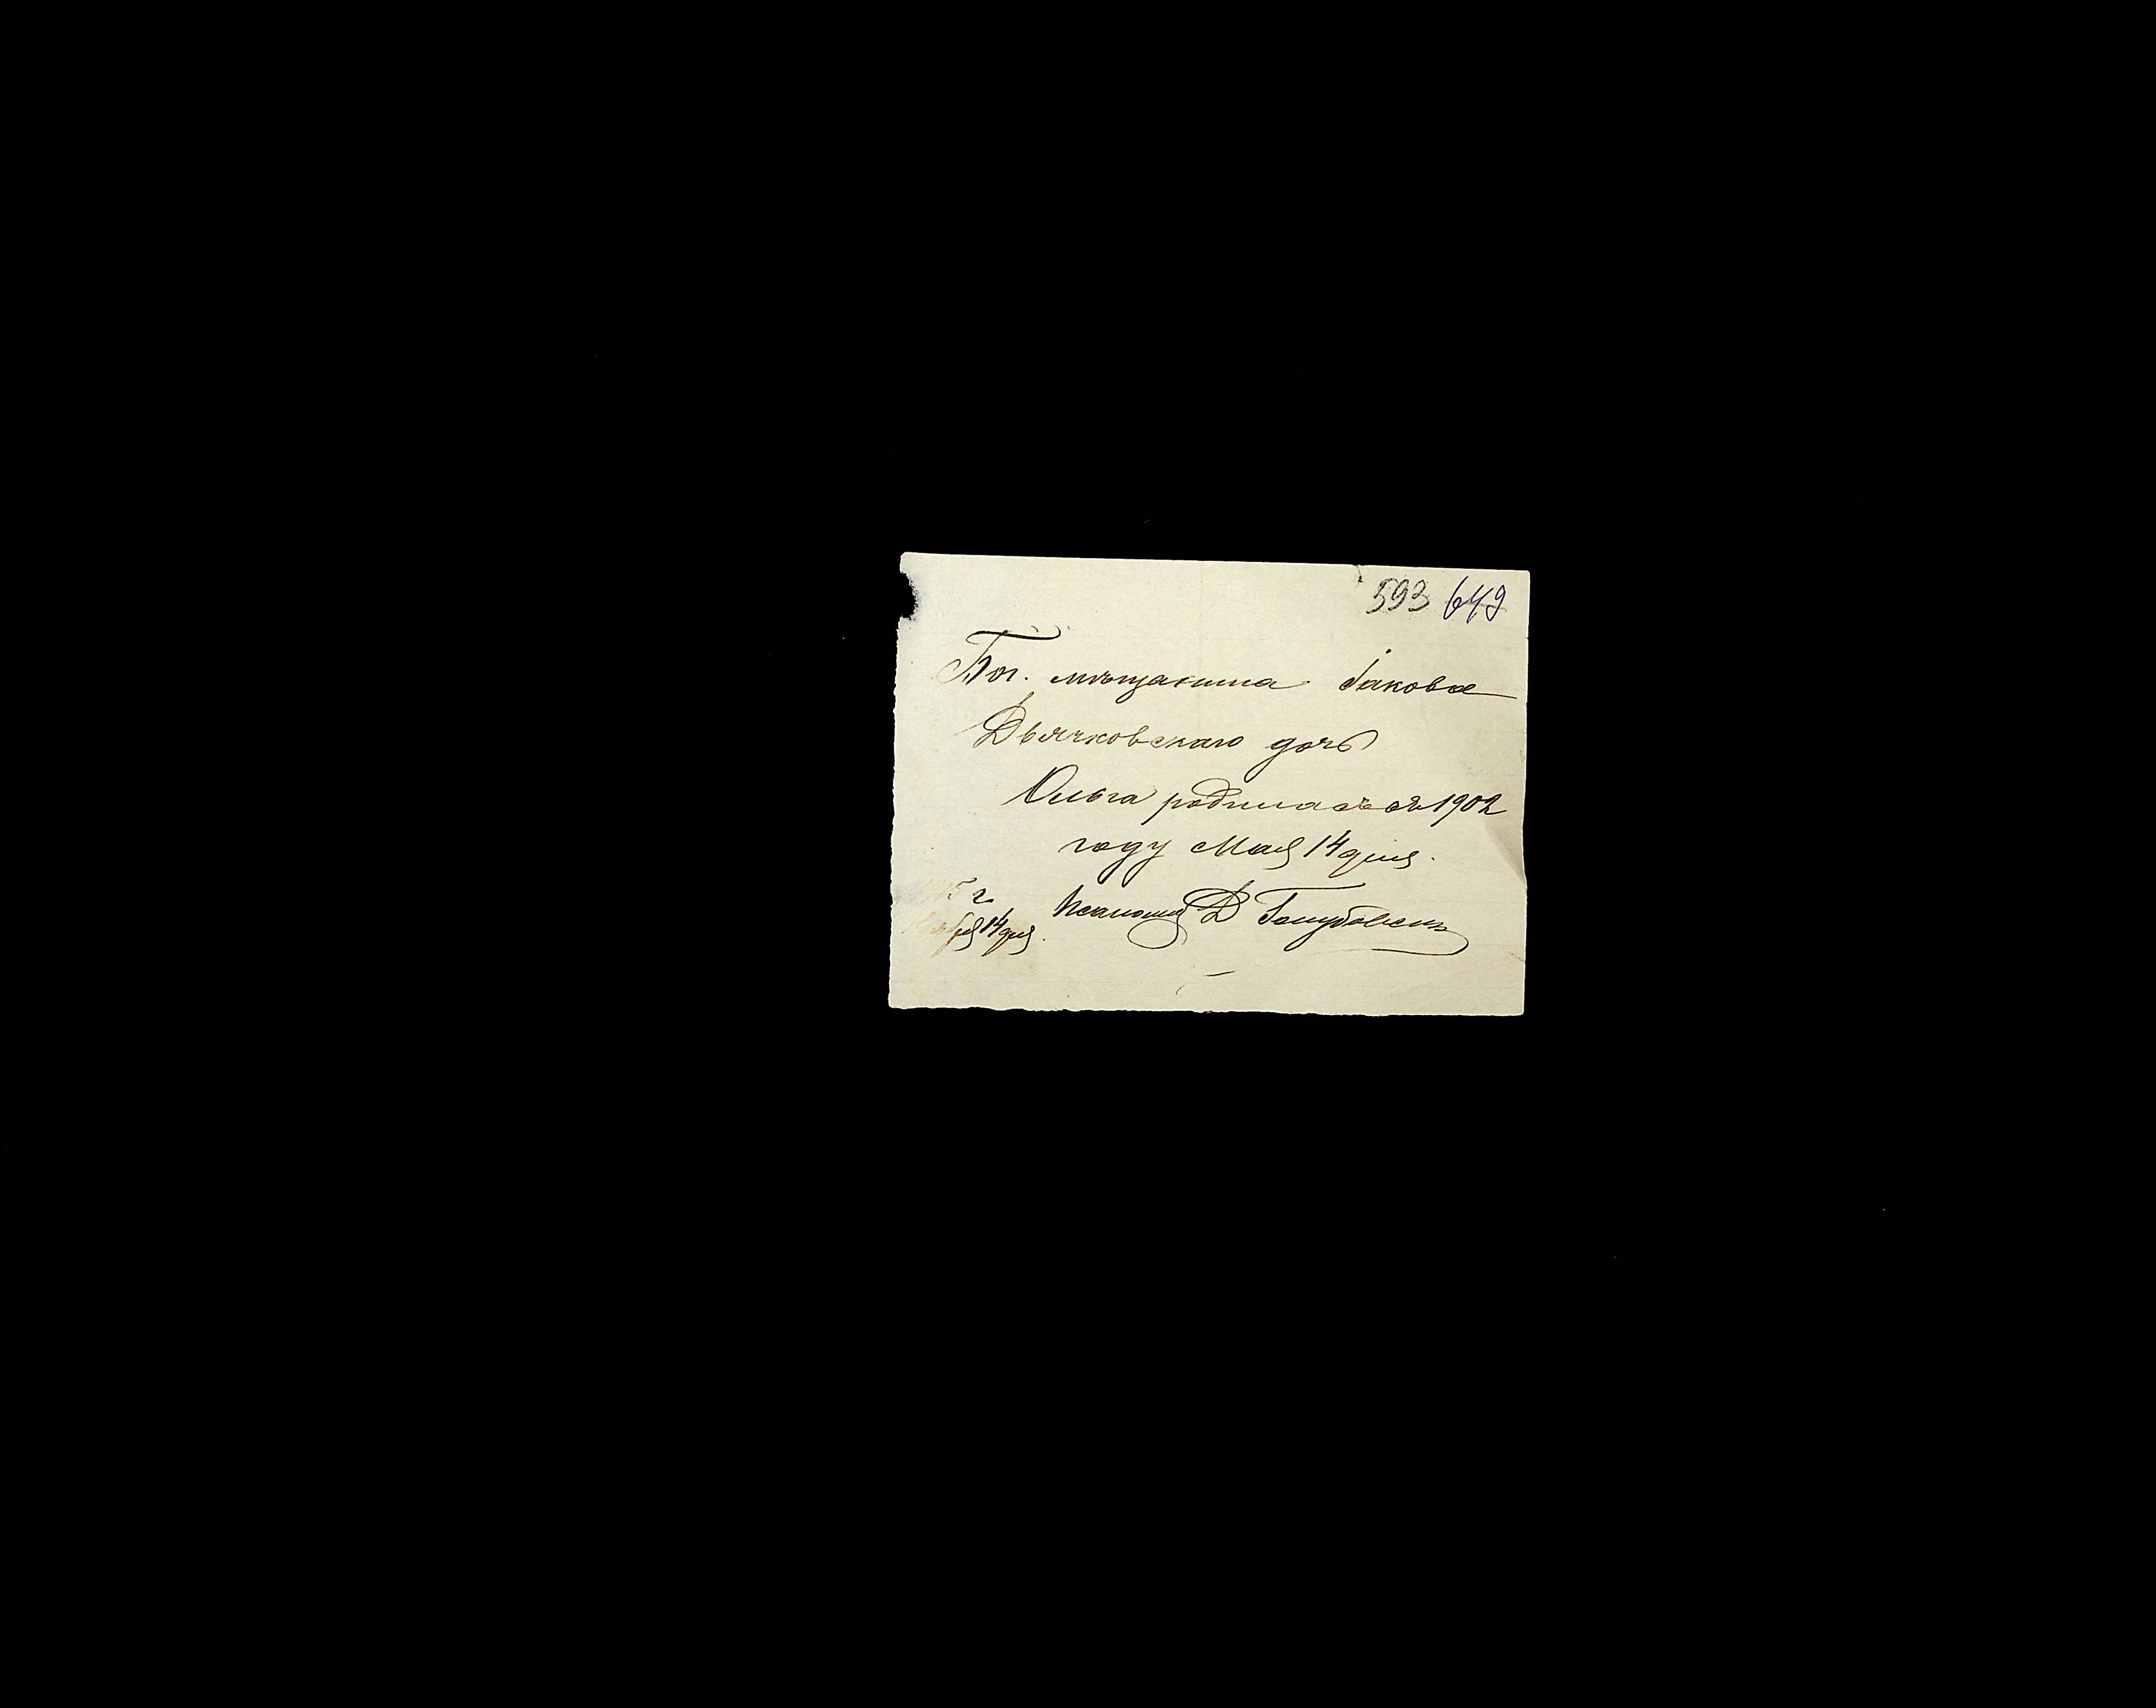 593 649
Бог. мѣщанина Іакова
Дьячковскаго дочь
Ольга родилась въ 1902
году Мая 14 дня.
1915 г
14 дня.
Псаломщ Д Голубовскі